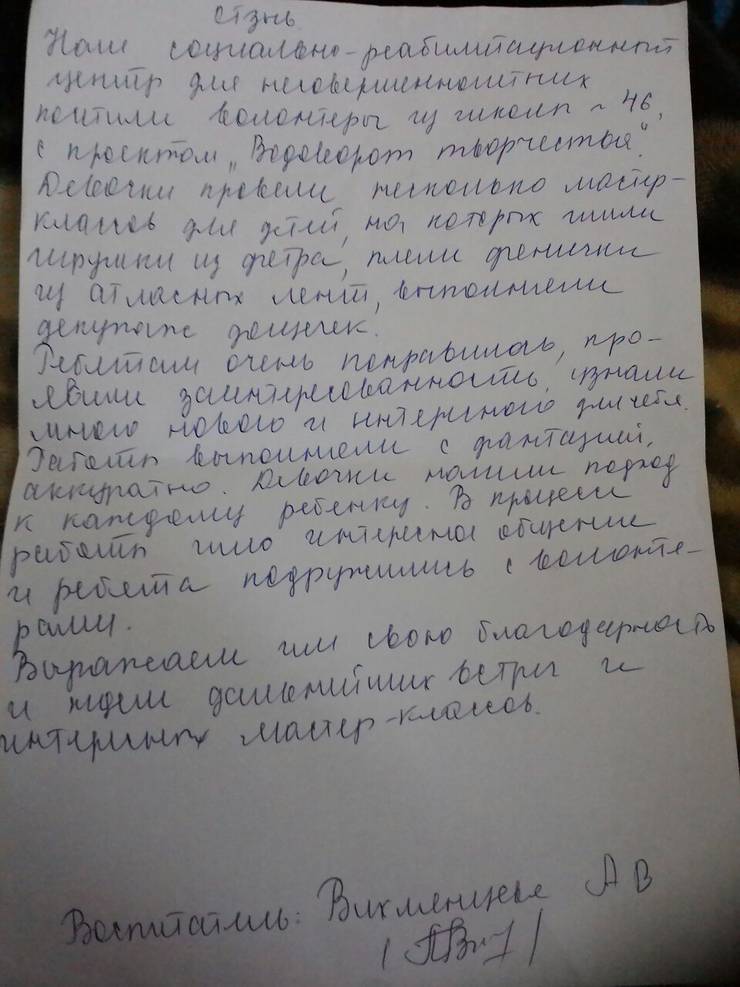 Отзыв
Наш социально-реабилитационный
центр для несовершеннолетних
посетили волонтеры из школы № 46,
с проектом „Водоворот творчества".
Девочки провели несколько мастер-
классов для детей, на которых шили
игрушки из фетра, плели фенички
из атласных лент, выполняли
декупаж дощечек.
Ребятам очень понравилось, про-
явили заинтересованность, узнали
много нового и интересного для себя.
Работы выполняли с фантазией,
аккуратно. Девочки нашли подход
к каждому ребенку. В процессе
работы шло интересное общение
и ребята подружились с волонте-
рами.
Выражаем им свою благодарность
и ждем дальнейших встреч и
интересных мастер-классов.
Воспитатель: А В